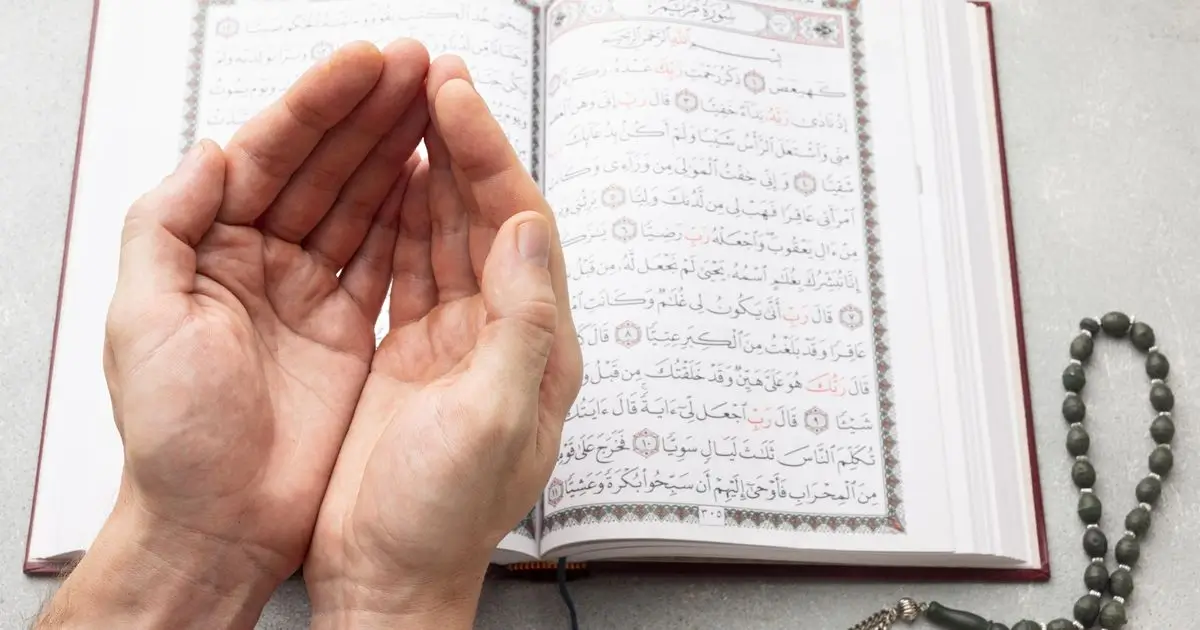 سُورَةُ مَرْيَمَ
بِسْمِ ٱللَّهِ ٱلرَّحْمَٰنِ ٱلرَّحِيمِ
كٓهيعٓصٓ ١ ذِكْرُ رَحْمَتِ رَبِّكَ عَبْدَهُۥ زَكَرِيَّآ
إِذْ نَادَىٰ رَبَّهُۥ نِدَآءً خَفِيًّا ٣ قَالَ رَبِّ إِنِّى وَهَنَ
مِنِّى وَٱشْتَعَلَ ٱلرَّأْسُ شَيْبًا وَلَمْ أَكُنۢ بِدُعَآئِكَ
شَقِيًّا ٤ وَإِنِّى خِفْتُ ٱلْمَوَٰلِىَ مِن وَرَآءِى وَكَانَتِ
ٱمْرَأَتِى عَاقِرًا فَهَبْ لِى مِن لَّدُنكَ وَلِيًّا ٥ يَرِثُنِى
مِنْ ءَالِ يَعْقُوبَ وَٱجْعَلْهُ رَبِّ رَضِيًّا ٦
إِنَّا نُبَشِّرُكَ بِغُلَٰمٍ ٱسْمُهُۥ يَحْيَىٰ لَمْ نَجْعَل لَّهُۥ مِن قَبْلُ
٧ قَالَ رَبِّ أَنَّىٰ يَكُونُ لِى غُلَٰمٌ وَكَانَتِ
عَاقِرًا وَقَدْ بَلَغْتُ مِنَ ٱلْكِبَرِ عِتِيًّا ٨ قَالَ
قَالَ رَبُّكَ هُوَ عَلَىَّ هَيِّنٌ وَقَدْ خَلَقْتُكَ مِن قَبْلُ
شَيْـًٔا ٩ قَالَ رَبِّ ٱجْعَل لِّىٓ ءَايَةً قَالَ ءَايَتُكَ
تُكَلِّمَ ٱلنَّاسَ ثَلَٰثَ لَيَالٍ سَوِيًّا ١٠ فَخَرَجَ عَلَىٰ قَوْمِهِۦ
مِنَ ٱلْمِحْرَابِ فَأَوْحَىٰٓ إِلَيْهِمْ أَن سَبِّحُوا۟ بُكْرَةً وَعَشِيًّا ١١
٣٠٥